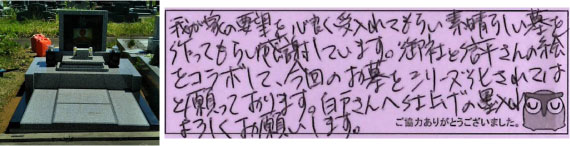 我が家の要望を心良く受入れてもらい素晴しい墓を
作ってもらい感謝しています。御社と
さんの絵
をコラボして、今回のお墓をシリーズ化されては
と願っております。白戸さんへ仕上げの墨入れ
よろしくお願いします。
ご協力ありがとうございました。